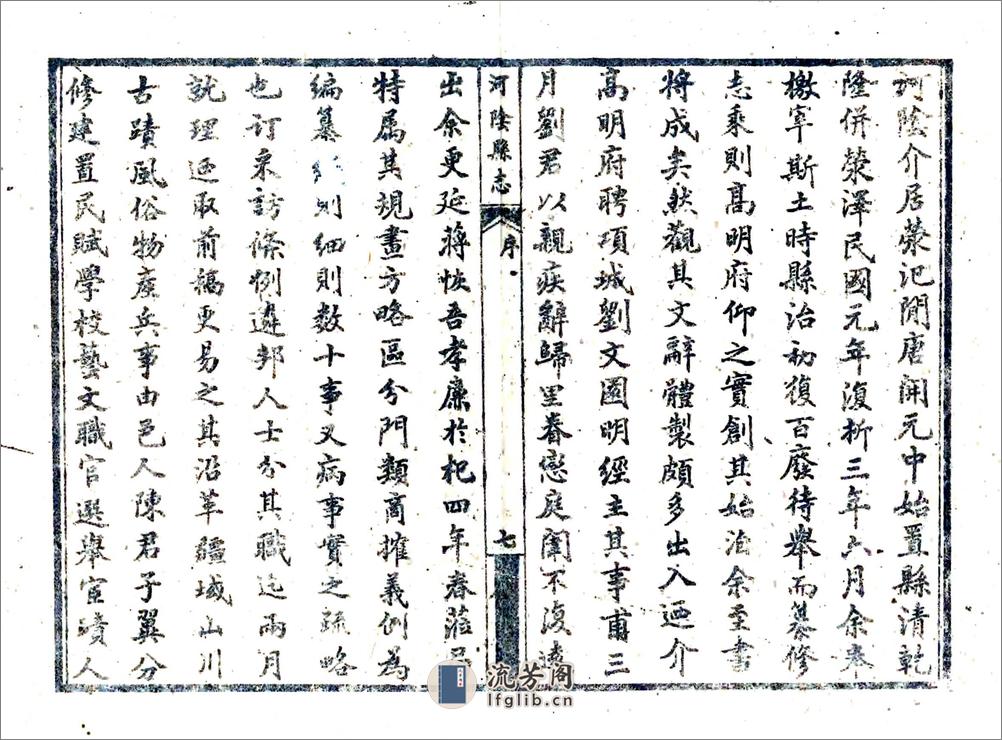 河陰介居滎汜間唐開元中始置縣清乾
隆併滎澤民國元年復析三年六月余奉
檄宰斯土時縣治初復百廢待舉而纂修
志乘則高明府仰之實創其始洎余至書
將成矣然觀其文辭體製頗多出入迺介
高明府聘項城劉文園明經主其事甫三
月劉君以親疾辭歸里眷戀庭闈不復遠
河陰縣志
序
七
出余更延蔣恢吾孝廉於杞四年春蒞
特属其規畫方略區分門類商搉義例為
編纂 則細則数十事又病事實之疏略
也訂采訪條例遴邦人士分其職迄兩月
就理迺取前稿更易之其沿革疆域山川
古蹟風俗物產兵事由邑人陳君子翼分
修建置民賦學校藝文職官選舉宦蹟人
流芳阁
lfglib.cn